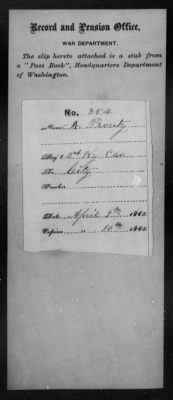 Record and Pension Office,
WAR DEPARTMENT.
The slip hereto attached is a stub from
a "Pass Book", Headquarters Department
of Washington.
No. 354
Name A. Prouty
Reg't 2nd Ky Cav
To City
Number
Date April 9th 1865
Expires " 10th 1865